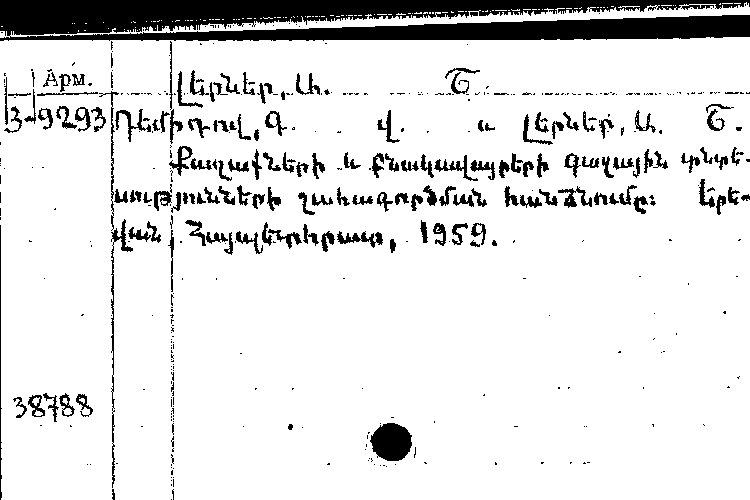 Арм. Լերներ, Ա. Շ.
3-9293 Դեմիդով, Գ. Վ. և Լերներ, Ա. Շ.
Քաղաքների և բնակավայրերի գազային տնտե-
սությունների շահագործման հանձնումը: Երե-
վան, Հայպետհրատ, 1959.
38788